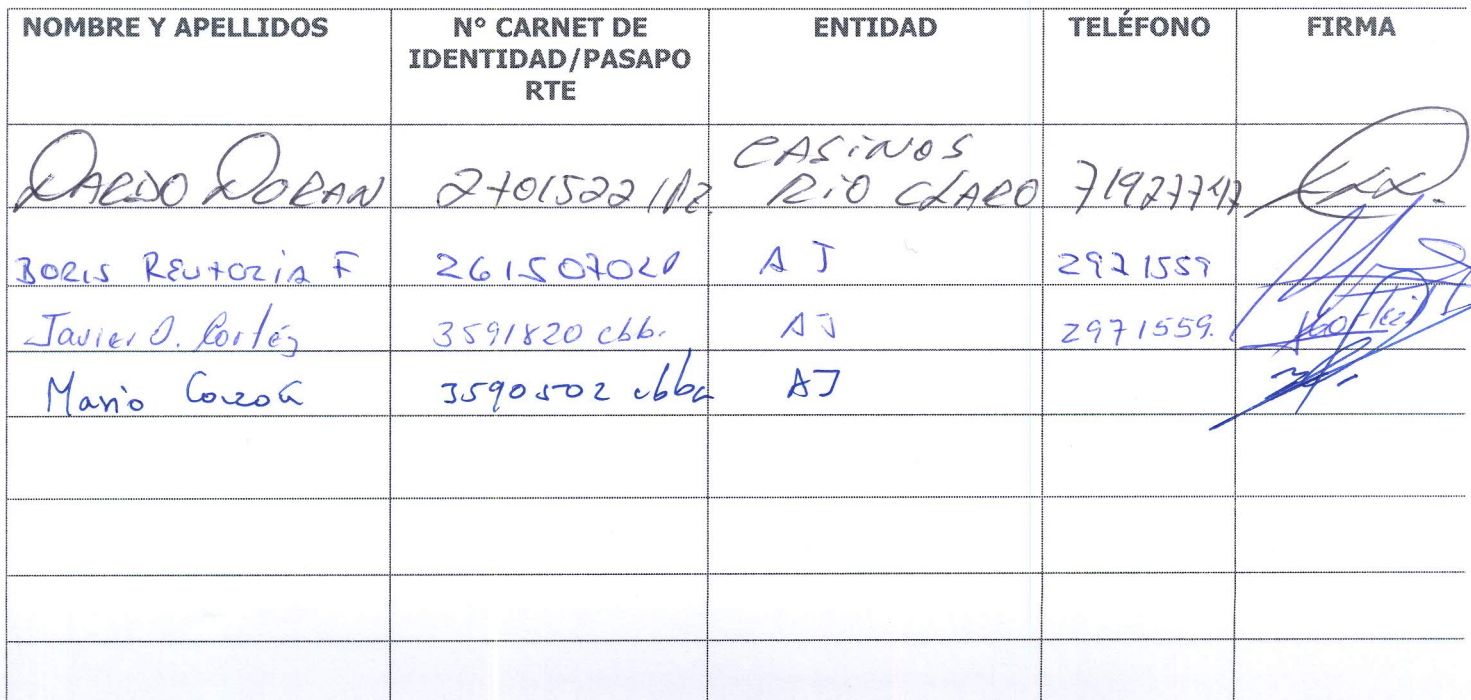 NOMBRE Y APELLIDOS
Nº CARNET DE
IDENTIDAD/PASAPO
RTE
ENTIDAD
TELÉFONO
FIRMA
DARDO DORAN
2701522
CASINOS
RIO CLARO
BORIS
AJ
2971559
Javier O. Cortés
3591820 cbb.
AJ
2971559.
Mario
3590502 cbba
AJ